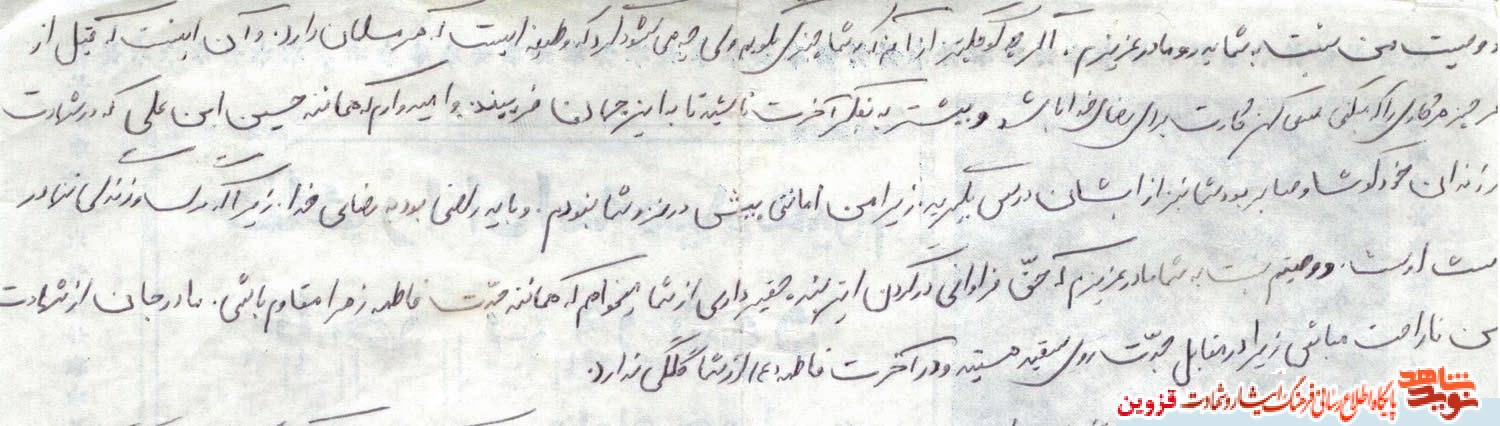 وصیت من نسبت به شما پدر و مادر عزیزم. اگر چه کوچکتر از آنم که به شما چیزی بگویم ولی چه می شود کرد که وظیفه ایست که هر مسلمان دارد. و آن اینست که قبل از
هر چیز هر کاری را که میکنی سعی کن کارت برای رضای خدا باشد و بیشتر به فکر آخرت باشید تا به این جهان فریبنده. و امیدوارم که همانند حسین ابن علی که در شهادت
فرزندان خود کوشا و صابر بود شما نیز از ایشان درس بگیرید. زیرا من امانتی بیش در نزد شما نبودم. و باید راضی بود به رضای خدا. زیرا که مرگ و زندگی تنها در
دست اوست. و وصیتم نسبت به شما مادر عزیزم که حق فراوانی در گردن این بنده حقیر داری از شما میخواهم که همانند جدّت فاطمه زهرا مقاوم باشی. مادر جان از شهادت
من ناراحت مباش زیرا در مقابل جدّت روی سفید هستید و در آخرت فاطمه (ع) از شما گلگی ندارد.
نوید شاهد
پایگاه اطلاع رسانی فرهنگ ایثار و شهادت قزوین